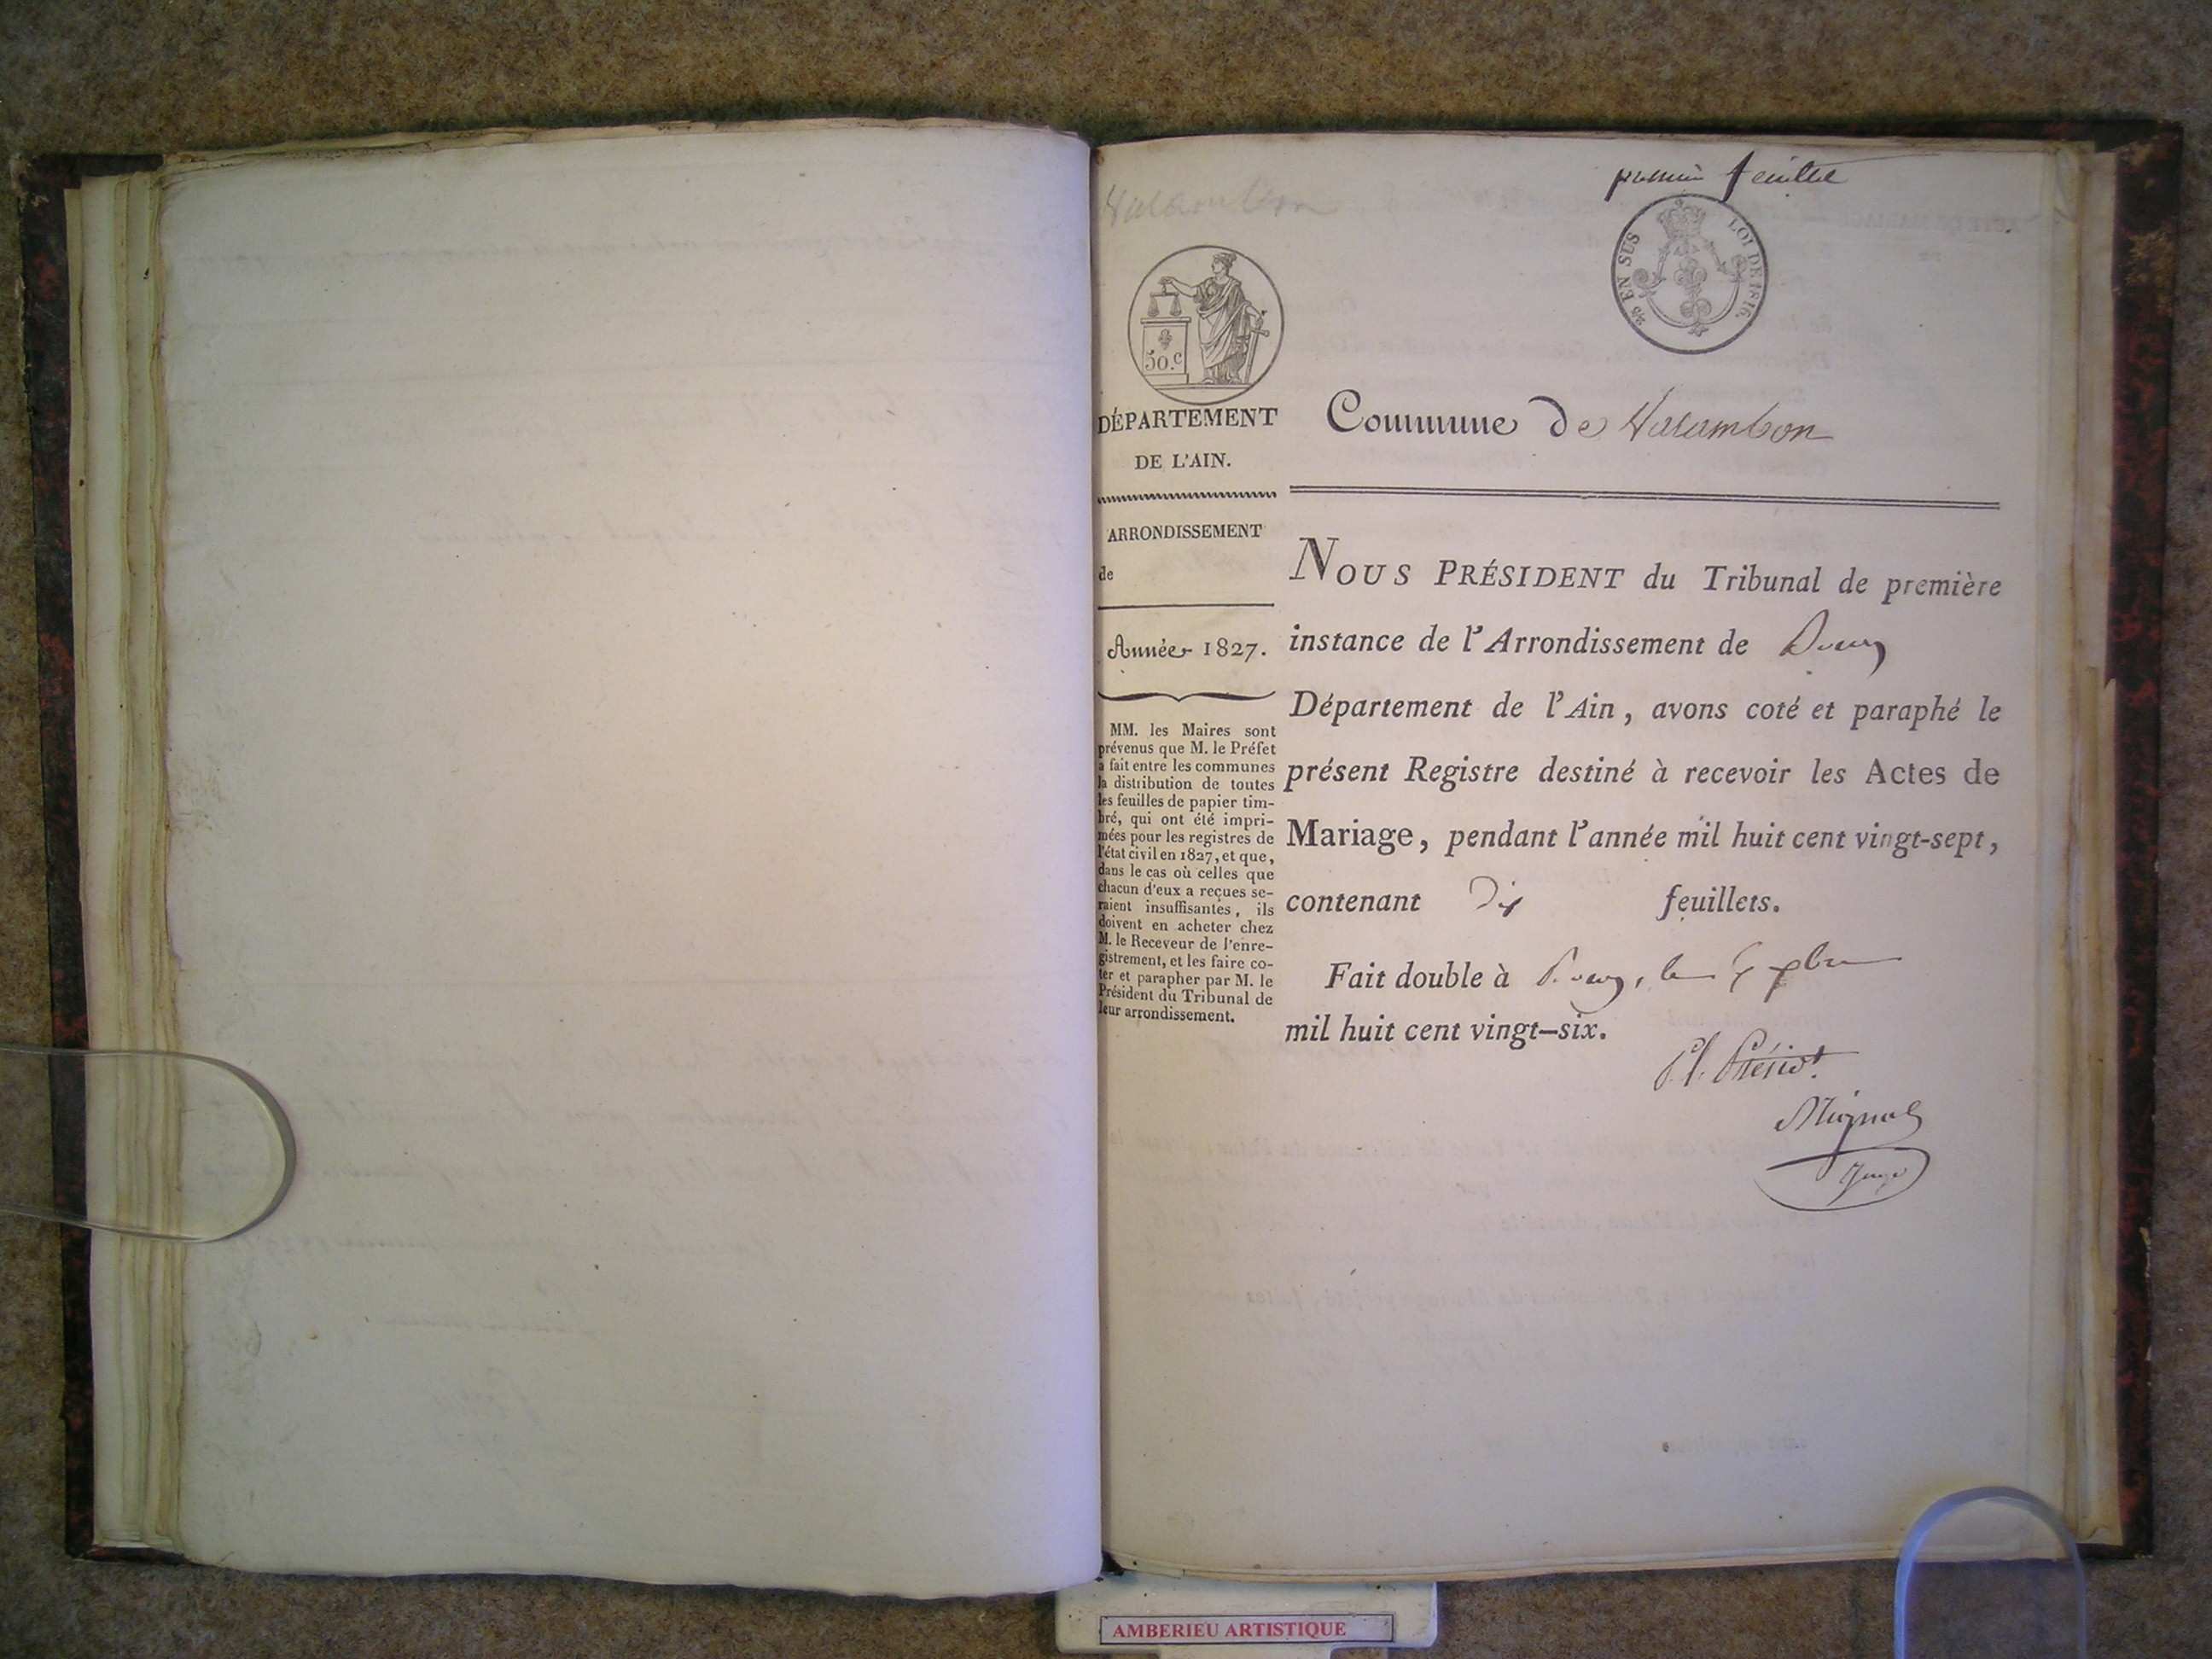 premier feuillet
Varambon
25 EN SUS
LOI DE 1816.
50.c
DÉPARTEMENT
DE L'AIN.
ARRONDISSEMENT
de
Année 1827.
MM. les Maires sont
prévenus que M. le Préfet
a fait entre les communes
la distribution de toutes
les feuilles de papier tim-
bré, qui ont été impri-
mées pour les registres de
l'état civil en 1827, et que,
dans le cas où celles que
chacun d'eux a reçues se-
raient insuffisantes, ils
doivent en acheter chez
M. le Receveur de l'enre-
gistrement, et les faire co-
ter et parapher par M. le
Président du Tribunal de
leur arrondissement.
Commune de Varambon
NOUS PRÉSIDENT du Tribunal de première
instance de l'Arrondissement de Bourg
Département de l'Ain, avons coté et paraphé le
présent Registre destiné à recevoir les Actes de
Mariage, pendant l'année mil huit cent vingt-sept,
contenant Dix feuillets.
Fait double à Bourg, le xbre
mil huit cent vingt-six.
Pr. Présidt.
Juge
AMBERIEU ARTISTIQUE